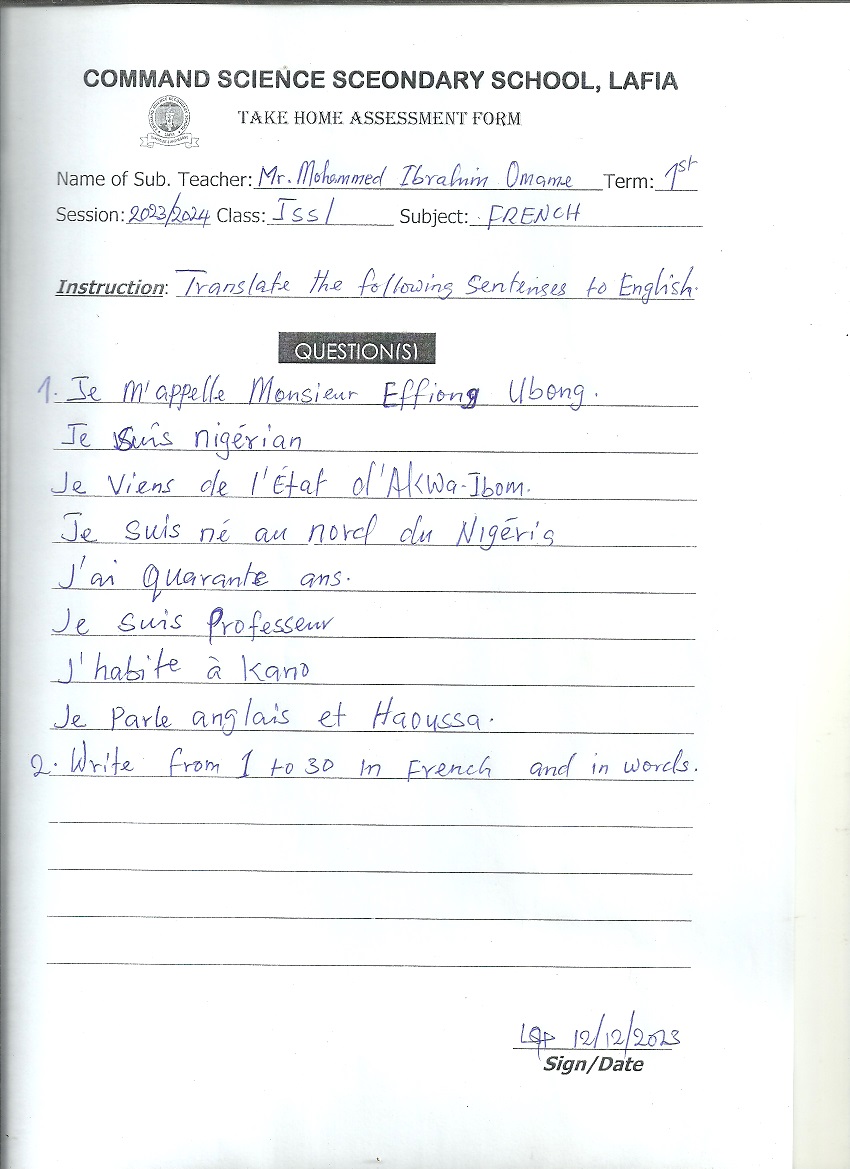 COMMAND SCIENCE SCEONDARY SCHOOL, LAFIA
TAKE HOME ASSESSMENT FORM
Name of Sub. Teacher: Mr. Mohammed Ibrahim Omame Term: 1st
Session: 2023/2024 Class: Jss1 Subject: FRENCH
Instruction: Translate the following Sentenses to English.
QUESTION(S)
1. Je m'appelle Monsieur Effiong Ubong.
Je suis nigérian
Je Viens de l'État d'Akwa-Ibom.
Je suis né au nord du Nigéria
J'ai quarante ans.
Je suis Professeur
J'habite à Kano
Je Parle anglais et Haoussa.
2. Write from 1 to 30 in French and in words.
12/12/2023
Sign/Date